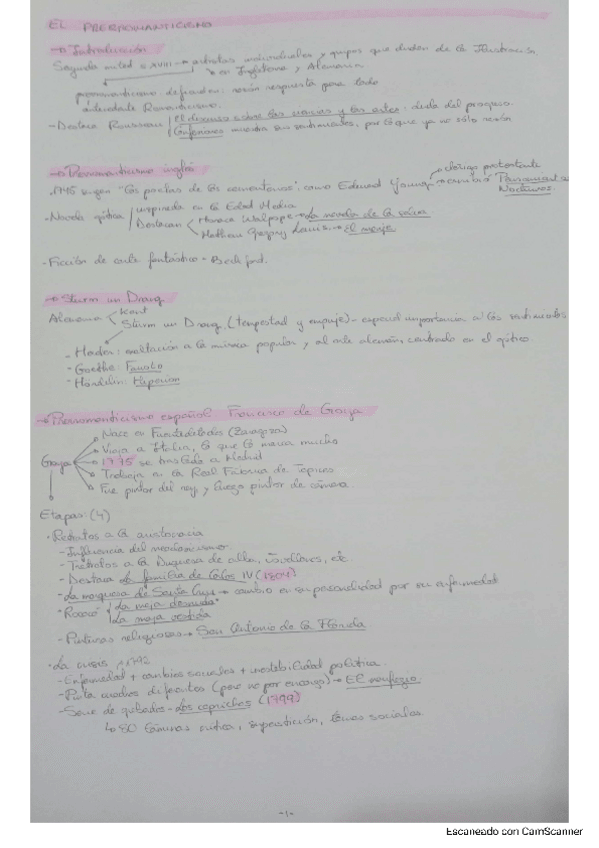 EL PRERROMANTICISMO
→ Introducción
Segunda mitad s. XVIII → artistas individuales y grupos que dudan de la Ilustración
↳ en Inglaterra y Alemania
prerromanticismo defienden: razón respuesta para todo
antecedente Romanticismo.
- Destaca Rousseau El discurso sobre las ciencias y las artes: duda del progreso.
Confesiones muestra sus sentimientos, por lo que ya no sólo razón
→ Prerromanticismo inglés
clérigo protestante
- 1745 surgen "Los poetas de los cementerios", como Edward Young → escribió Pensamientos
Nocturnos.
- Novela gótica inspirada en la Edad Media
Destacan Horace Walpope → La novela de
Mathew Gregory Lewis → El monje
- Ficción de corte fantástico - Beckford.
→ Sturm un Drang
Alemania Kant
Sturm un Drang (tempestad y empuje) - especial importancia a los sentimientos
- Herder: exaltación a la música popular y al arte alemán, centrado en el gótico.
- Goethe: Fausto
- Hölderlin: Hiperión
→ Prerromanticismo español Francisco de Goya
Nace en Fuendetodos (Zaragoza)
Viaja a Italia, lo que lo marca mucho
Goya 1775 se traslada a Madrid
Trabaja en la Real Fábrica de Tapices
Fue pintor del rey y luego pintor de cámara.
Etapas: (4)
· Retratos a la aristocracia
- Influencia del neoclasicismo.
- Retratos a la Duquesa de alba, Jovellanos, etc
- Destaca La familia de Carlos IV (1804)
- La marquesa de Santa Cruz → cambio en su personalidad por su enfermedad
"Rococó" La maja desnuda"
La maja vestida
- Pinturas religiosas → San Antonio de la Florida
· La crisis 1792
- Enfermedad + cambios sociales + inestabilidad política.
- Pinta cuadros diferentes (pero no por encargo) → El naufragio
- Serie de grabados - Los caprichos (1799)
↳ 80 láminas crítica, superstición, temas sociales.
-1-
Escaneado con CamScanner